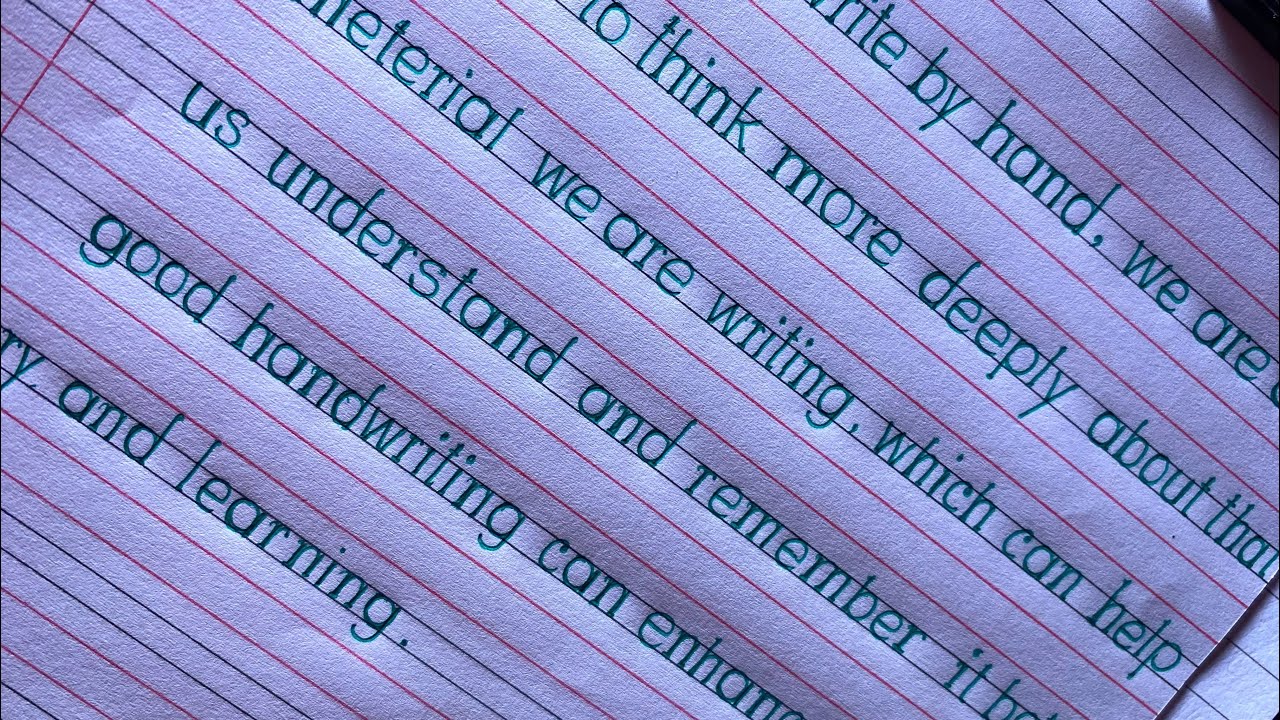 write by hand, we are
to think more deeply about that
meterial we are writing, which can help
us understand and remember it bet
good handwriting can enhanc
ry and learning.